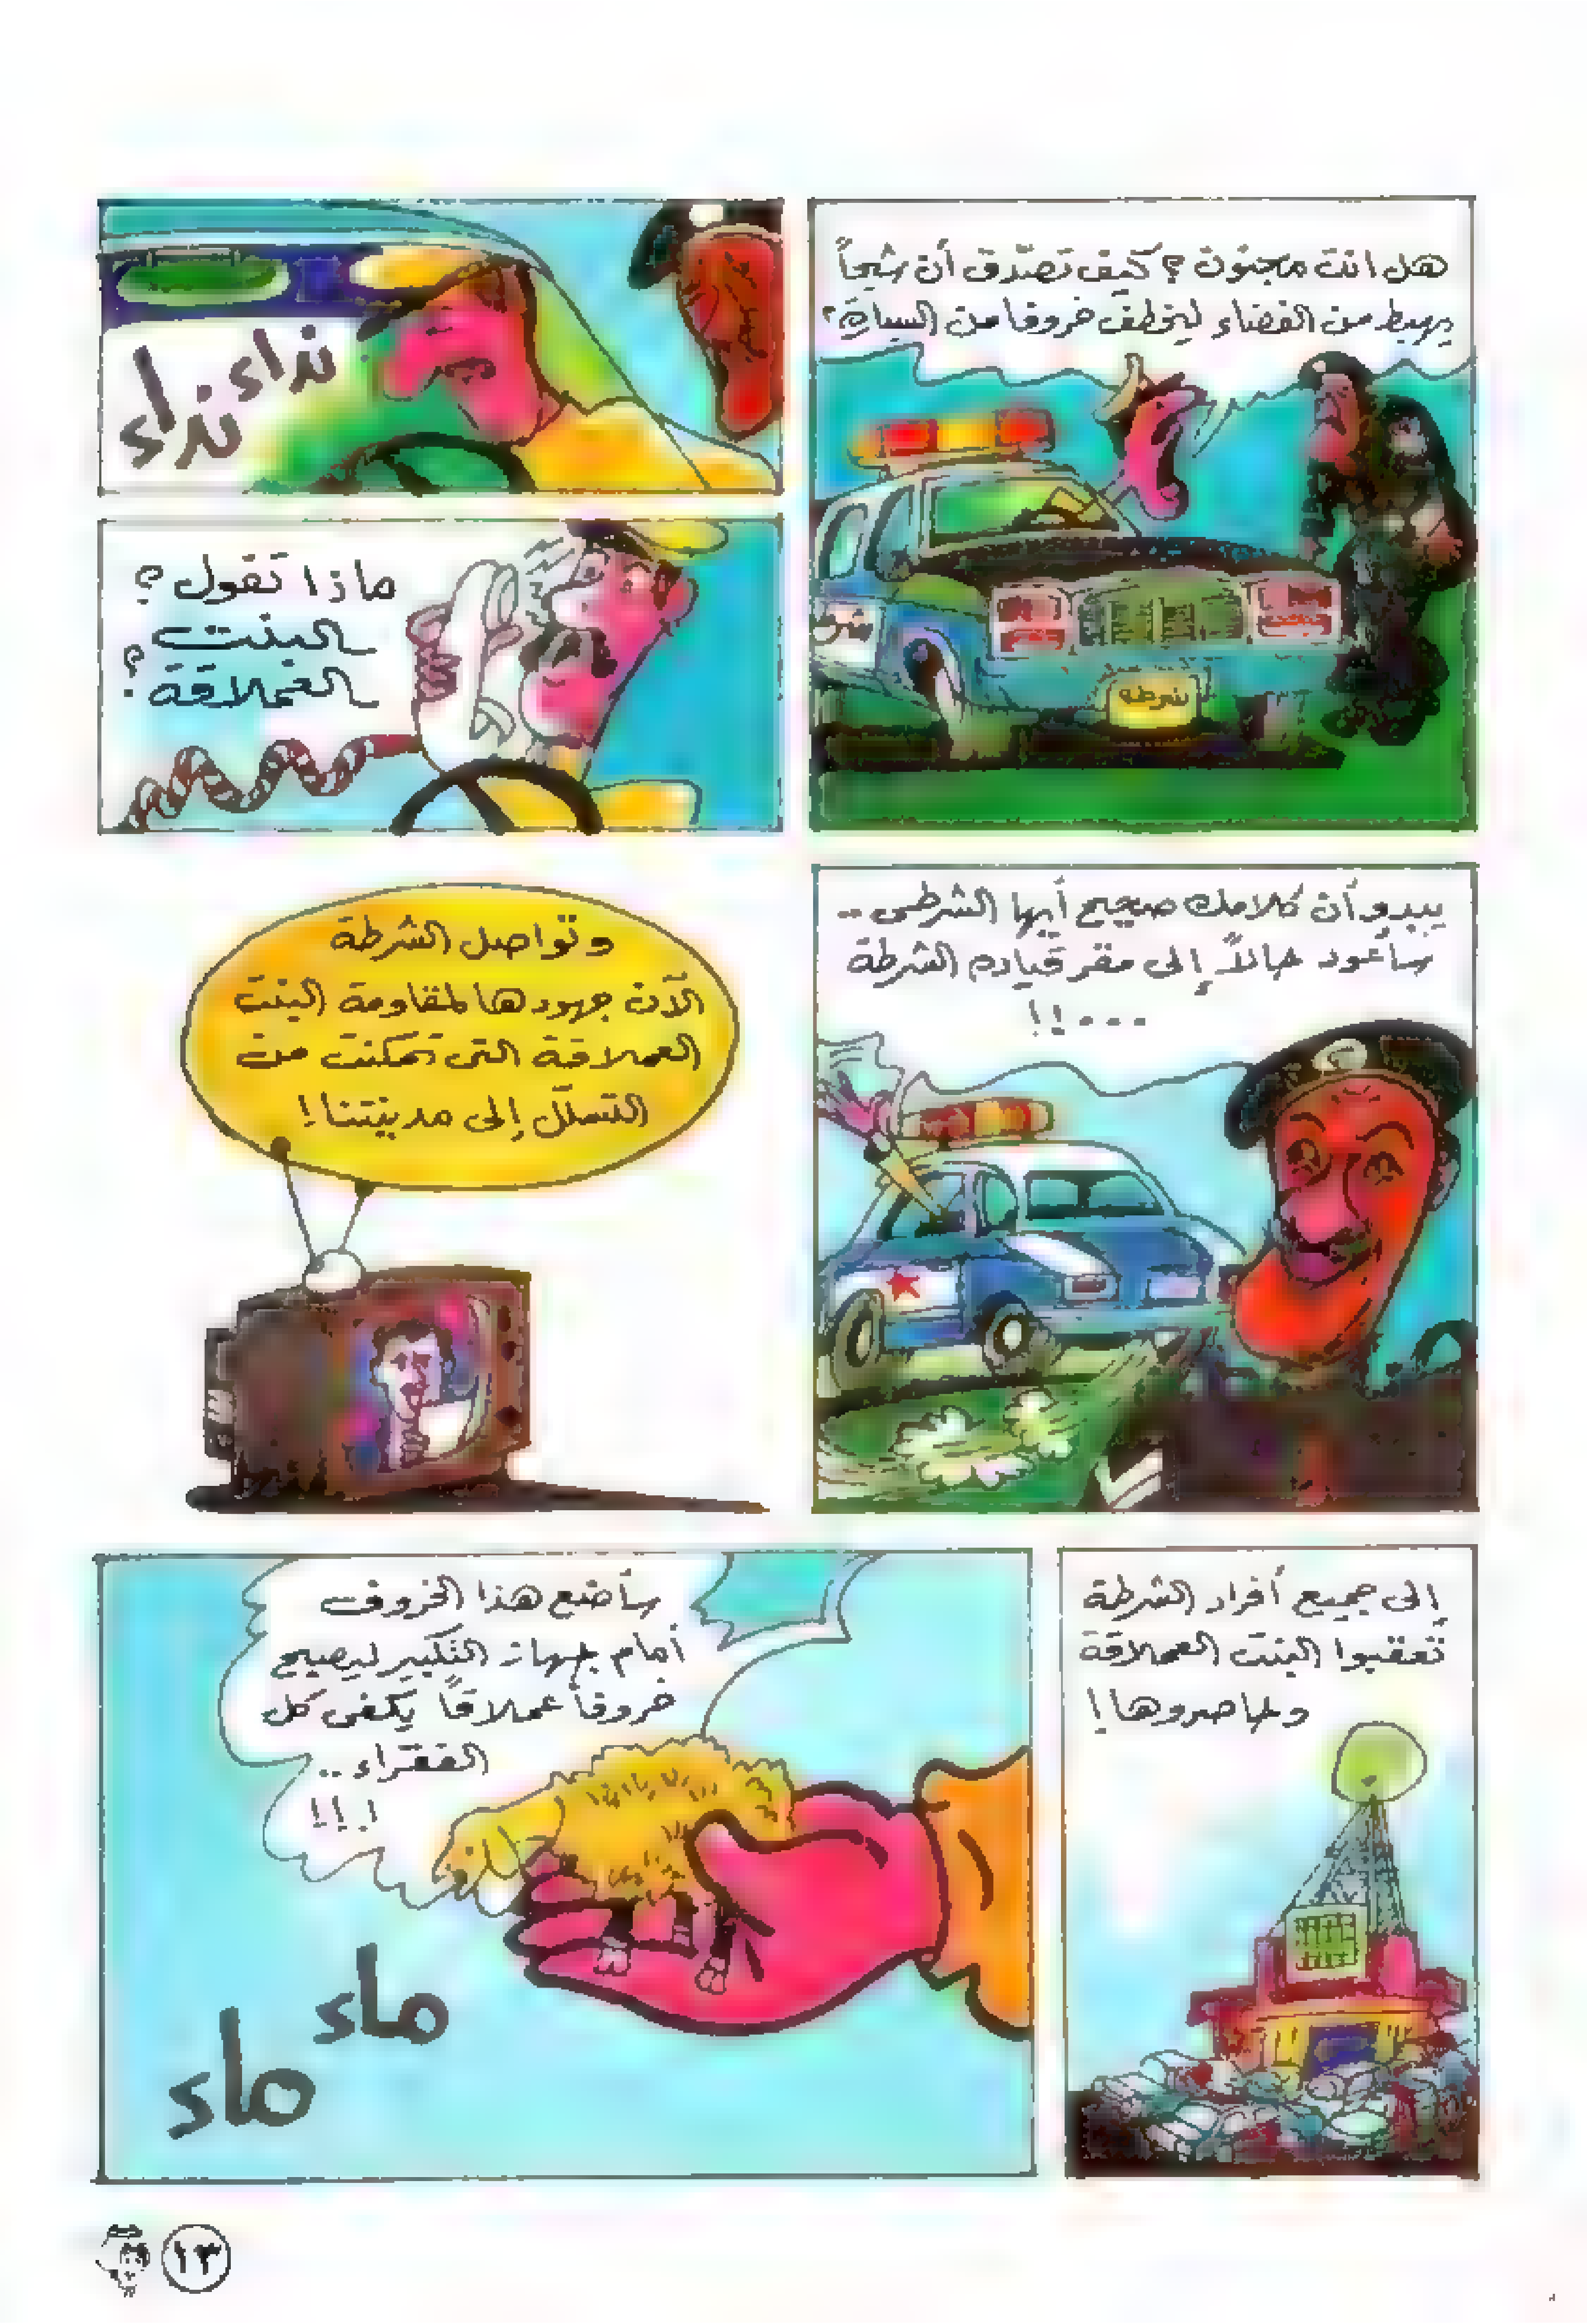 هل انت مجنون؟ كيف تصدّق أن شبحاً
يهبط من الفضاء ليخطف خروفا من السيارة؟
شرطه
نداء
نداء
ماذا تقول؟
البنت
العملاقة؟
يبدو أن كلامك صحيح أيها الشرطى..
سأعود حالاً إلى مقر قيادة الشرطة
...!!
وتواصل الشرطة
الآن جهودها لمقاومة البنت
العملاقة التى تمكنت من
التسلل إلى مدينتنا!
إلى جميع أفراد الشرطة
تعقبوا البنت العملاقة
وحاصروها!
سأضع هذا الخروف
أمام جهاز التكبير ليصبح
خروفاً عملاقاً يكفى كل
الفقراء..
!!!
ماء
ماء
١٣